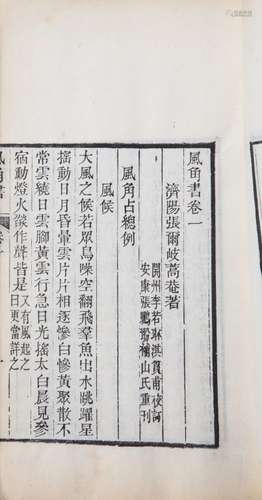 風角書卷一
濟陽張爾岐蒿菴著
開州李若琳淇篔甫校訂
安康張鵬翂補山氏重刊
風角占總例
風候
大風之候若眾鳥噪空翻飛羣魚出水跳躍星
搖動日月昏暈雲片片相逐慘白慘黃聚散不
常雲繞日雲腳黃雲行急日光搖太白晨見參
宿動燈火燄作聲皆是
又有風起之
日更當詳之
風角書
卷一